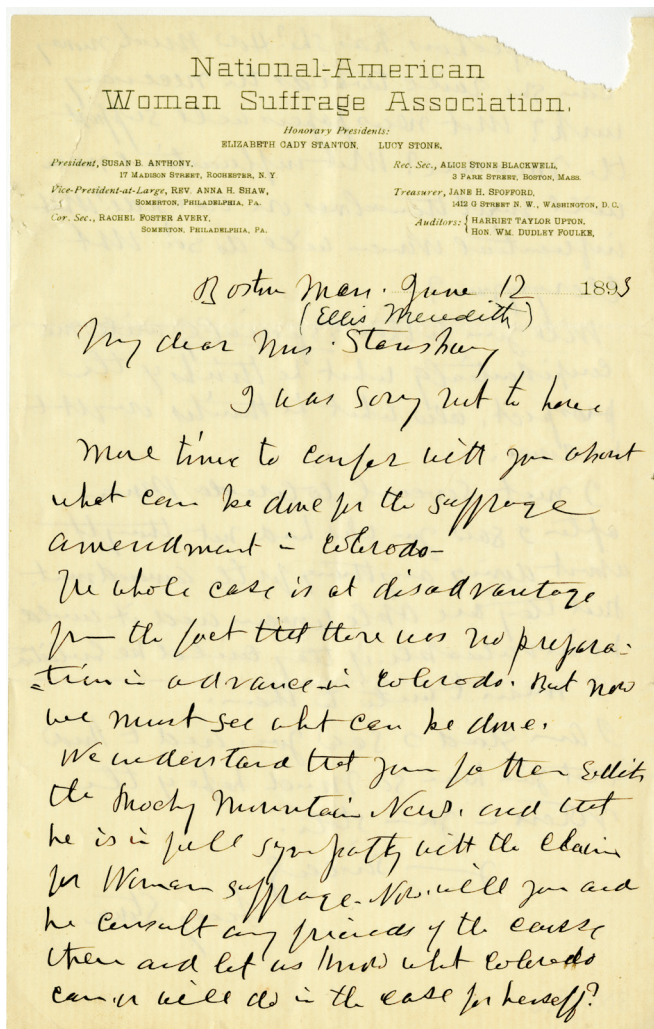 National-American
Woman Suffrage Association.
Honorary Presidents:
ELIZABETH CADY STANTON, LUCY STONE.
President, SUSAN B. ANTHONY,
17 MADISON STREET, ROCHESTER, N. Y.
Vice-President-at-Large, REV. ANNA H. SHAW,
SOMERTON, PHILADELPHIA, PA.
Cor. Sec., RACHEL FOSTER AVERY,
SOMERTON, PHILADELPHIA, PA.
Rec. Sec., ALICE STONE BLACKWELL,
3 PARK STREET, BOSTON, MASS.
Treasurer, JANE H. SPOFFORD,
1412 G STREET N. W., WASHINGTON, D. C.
Auditors: { HARRIET TAYLOR UPTON,
HON. WM. DUDLEY FOULKE.
Boston Mass. June 12 1893
(Ellis Meredith)
My dear Mrs. Stansbury
I was sorry not to have
more time to confer with you about
what can be done for the suffrage
amendment in Colorado-
The whole case is at disadvantage
from the fact that there was no prepara-
-tion in advance in Colorado. But now
we must see what can be done.
We understand that your father edits
the Rocky Mountain News. and that
he is in full sympathy with the claim
for Woman suffrage. Now will you and
he consult any friends of the cause
there and let us know what Colorado
can, or will do in the case for herself?